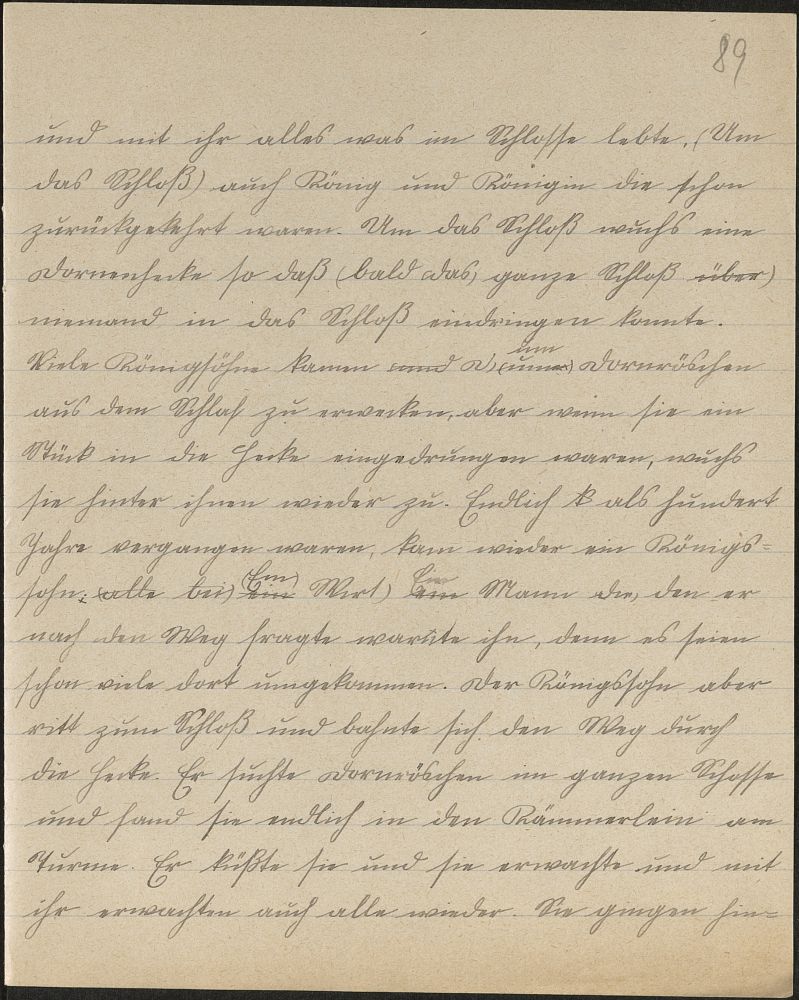 89
und mit ihr alles was im Schlosse lebte. (Um
das Schloß) auch König und Königin die schon
zurückgekehrt waren. Um das Schloß wuchs eine
Dornenhecke so daß (bald das) ganze Schloß über)
niemand in das Schloß eindringen konnte.
Viele Königsöhne kamen und D, um Dornröschen
aus dem Schlaf zu erwecken, aber wenn sie ein
Stück in die Hecke eingedrungen waren, wuchs
sie hinter ihnen wieder zu. Endlich k als hundert
Jahre vergangen waren, kam wieder ein Königs=
sohn; (alle bei) (Ein) ein Wirt) Ein Mann die, den er
nach den Weg fragte warnte ihn, denn es seien
schon viele dort umgekommen. Der Königssohn aber
ritt zum Schloß und bahnte sich den Weg durch
die Hecke. Er suchte Dornröschen im ganzen Schosse
und fand sie endlich in den Kämmerlein am
Turme. Er küßte sie und sie erwachte und mit
ihr erwachten auch alle wieder. Sie gingen hin=